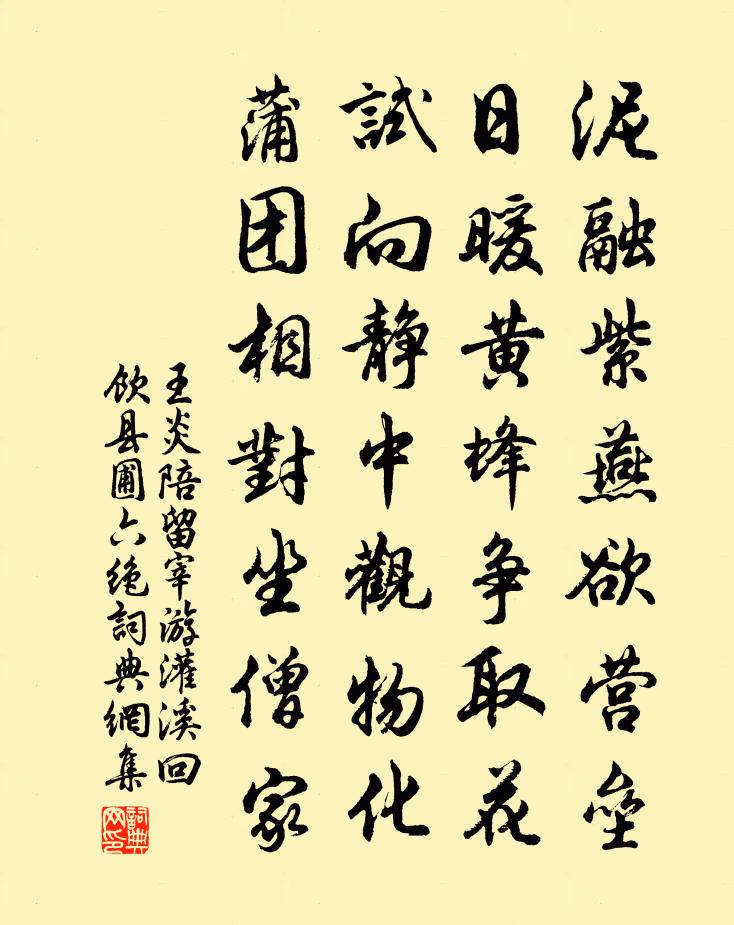 泥融紫燕欲营壘
日暖黄蜂争取花
試向静中觀物化
蒲团相對坐僧家
王炎陪留宰游灌溪回
飲县圃六绝詞典網集
詞典
网印